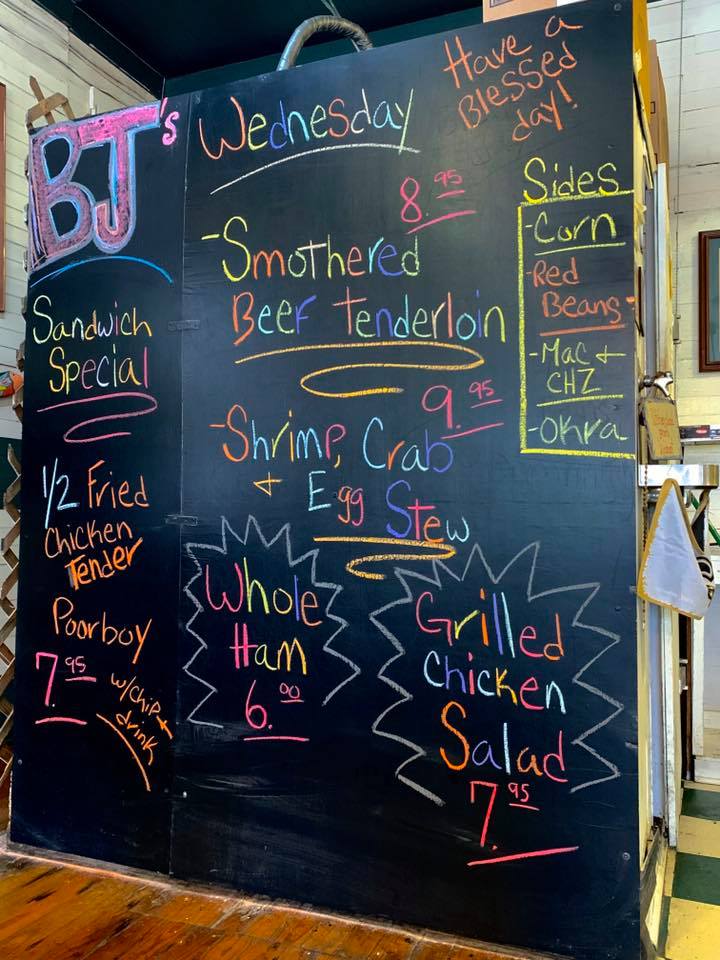 BJ's
Sandwich
Special
1/2 Fried
Chicken
Tender
Poorboy
7.95
w/chip +
drink
Wednesday
Have a
Blessed
day!
8.95
-Smothered
Beef Tenderloin
9.95
-Shrimp, Crab
+ Egg Stew
Whole
Ham
6.00
Grilled
Chicken
Salad
7.95
Sides
-Corn
-Red
Beans
-Mac +
CHZ
-Okra